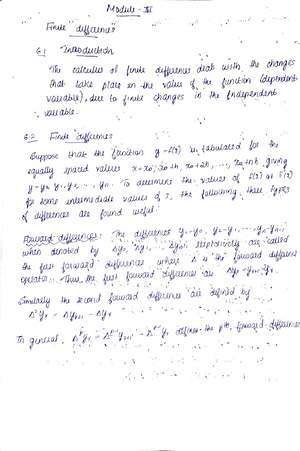 Module - III
Finite differences
6.1 Introduction
The calculus of finite differences deals with the changes
that take place in the value of the function (dependent
variable), due to finite changes in the independent
variable.
6.2 Finite differences
Suppose that the function y = f(x) is tabulated for the
equally spaced values x = x0, x0+h, x0+2h, ..., x0+nh, giving
y = y0, y1, y2, ..., yn. To determine the values of f(x) or f'(x)
for some intermediate values of x, the following three types
of differences are found useful.
Forward differences: The differences y1-y0, y2-y1, ..., yn-yn-1
when denoted by Δy0, Δy1, ... Δyn-1, respectively are called
the first forward differences where Δ is the forward difference
operator. Thus the first forward differences are Δyr = yr+1 - yr
Similarly the second forward differences are defined by
Δ²yr = Δyr+1 - Δyr
In general, Δᵖyr = Δᵖ⁻¹yr+1 - Δᵖ⁻¹yr defines the pth forward differences